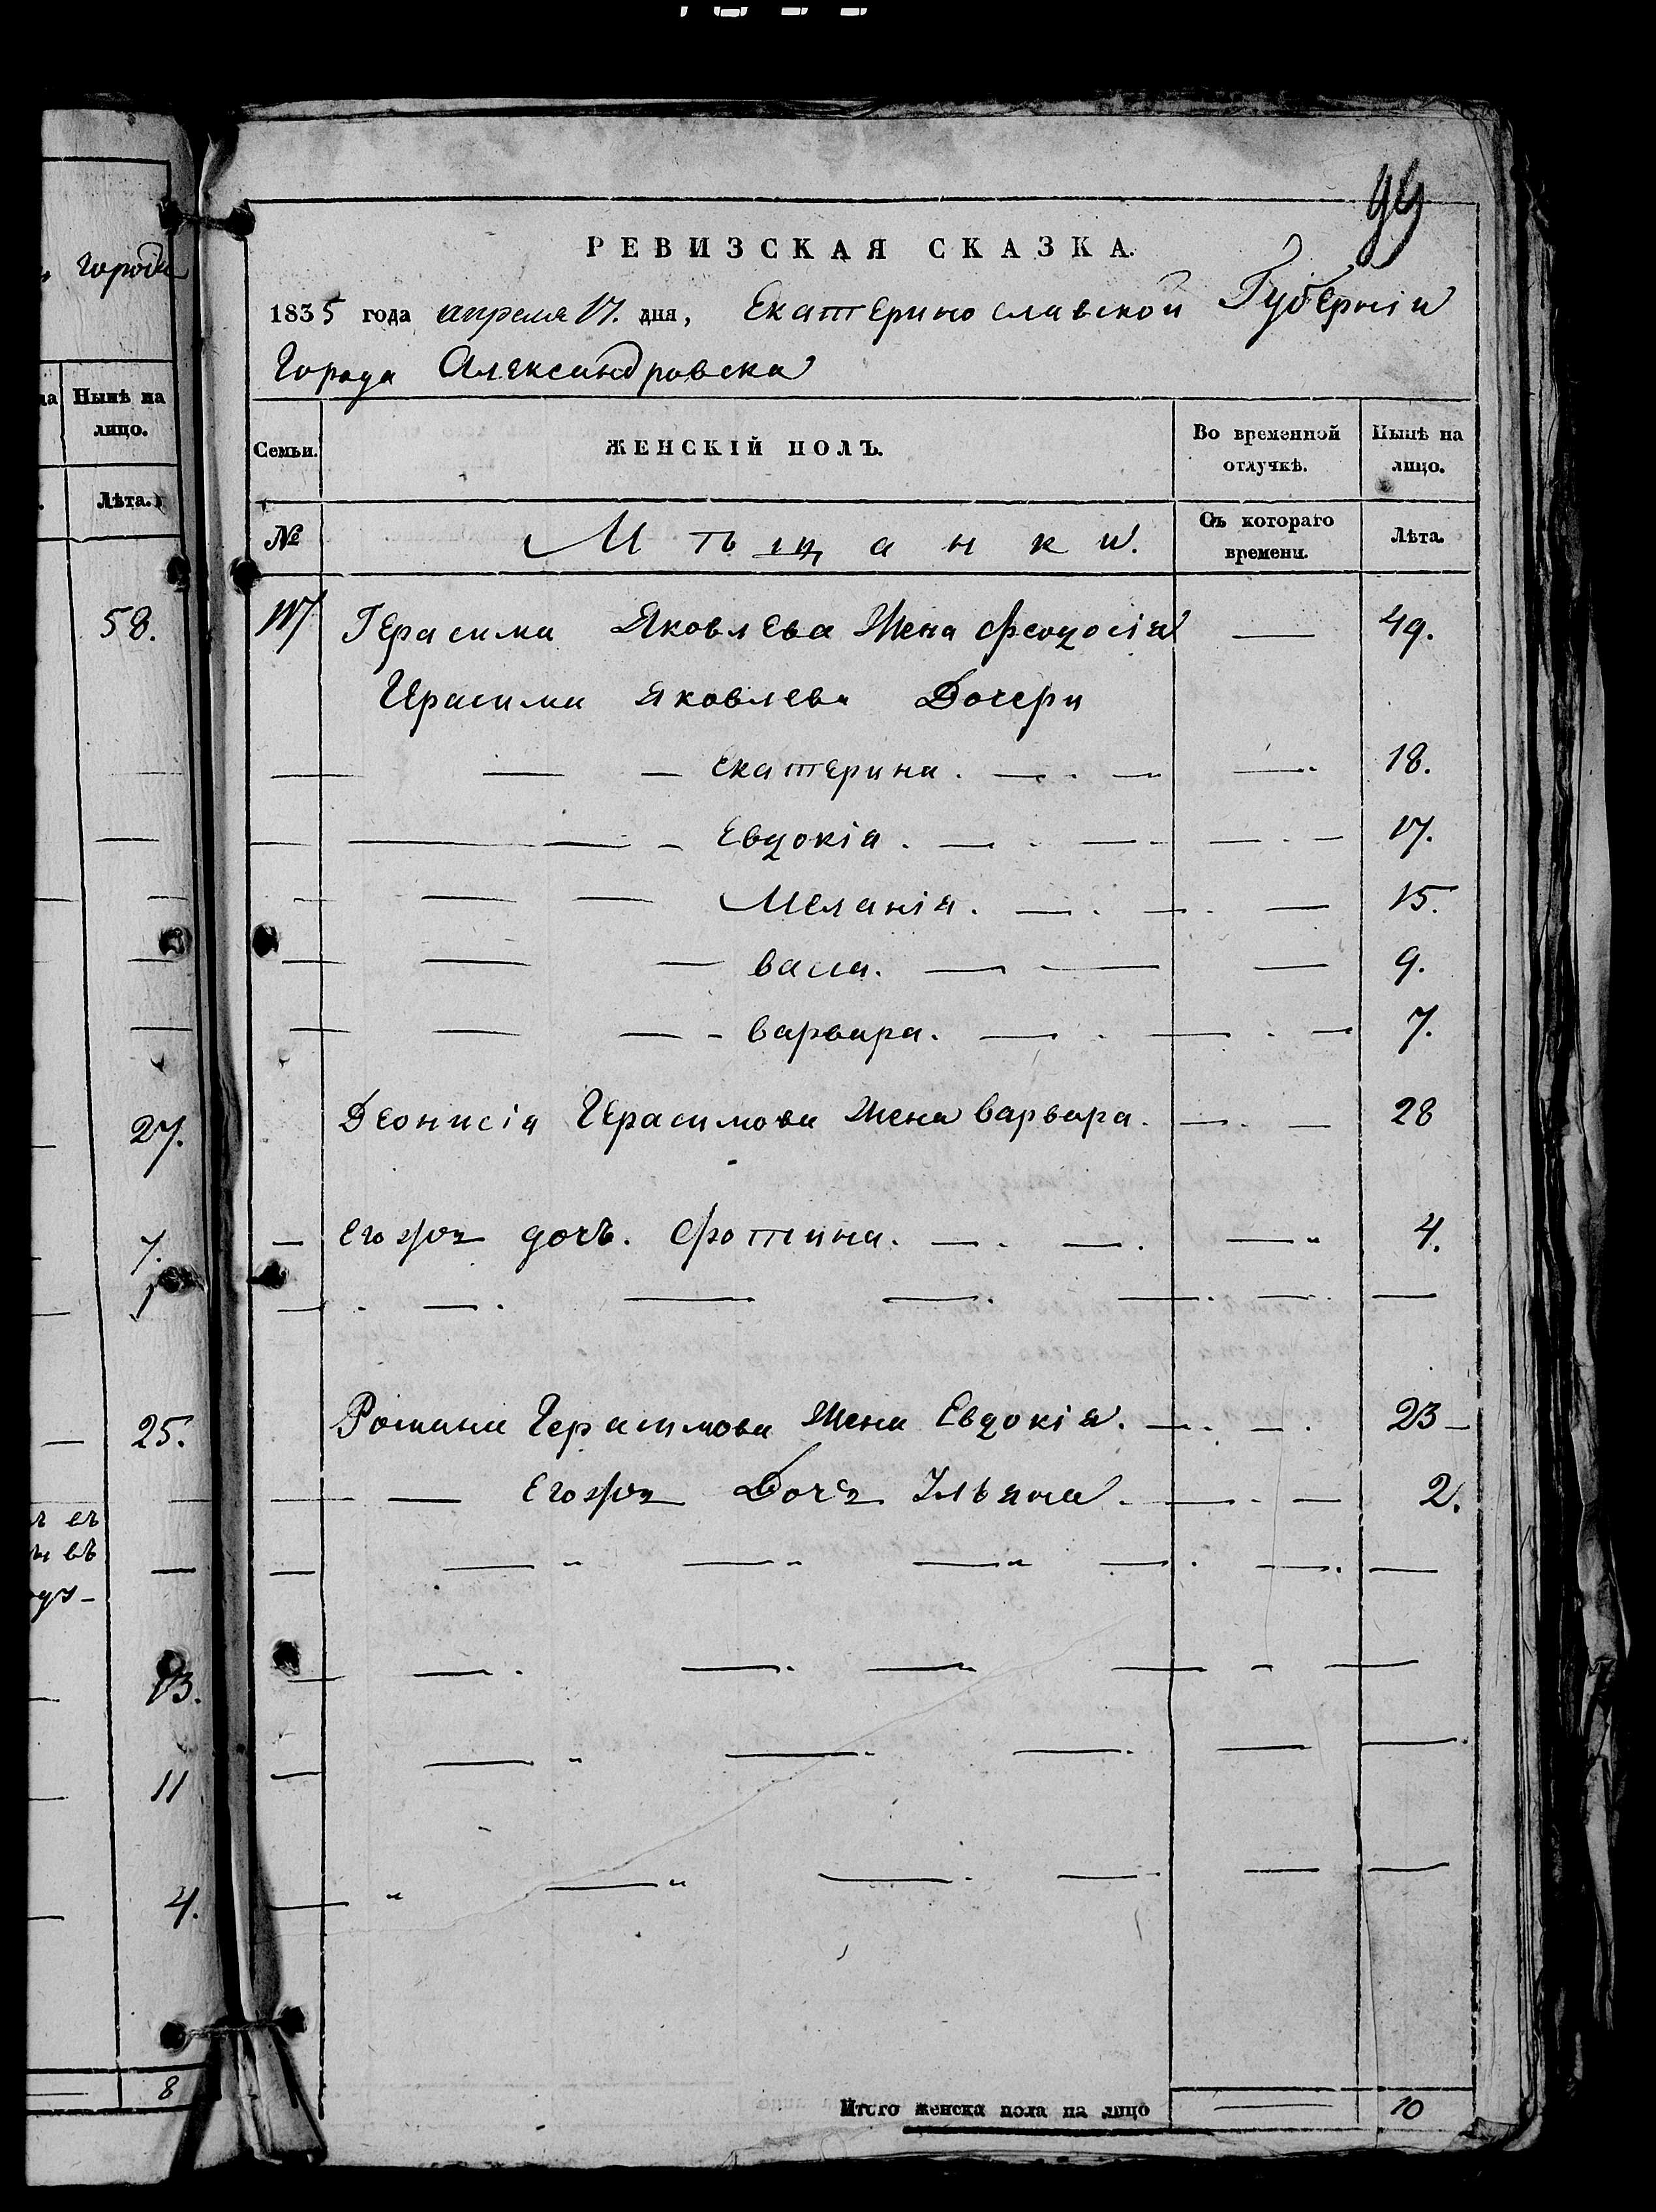 города
Нынѣ на
лицо.
Лѣта.
58.
27.
7.
1
25.
въ
13.
11
4.
8
99
РЕВИЗСКАЯ СКАЗКА.
1835 года апреля 17. дня, Екатеринославской Губерніи
Города Александровска
Семьи.
ЖЕНСКІЙ ПОЛЪ.
Во временной
отлучкѣ.
Нынѣ на
лицо.
№
Мѣщанки.
Съ котораго
времени.
Лѣта.
Герасима Яковлева Жена Феодосія — 49.
Герасима Яковлева Дочери
— — — Екатерина. — . — — . 18.
— — — — Евдокія . — . — . — . — 17.
— — — Меланія. — . — . — 15.
— — — васса. — — — 9.
— — — - варвара. — . — . — 7.
Деонисія Герасимова Жена варвара. — . — 28
— его жъ дочь. Фотина. — . — . — " 4.
Романа Герасимова Жена Евдокія. — . — . 23 –
— — Его жъ Дочъ Ульяна . — . — 2.
Итого женска пола на лицо — 10